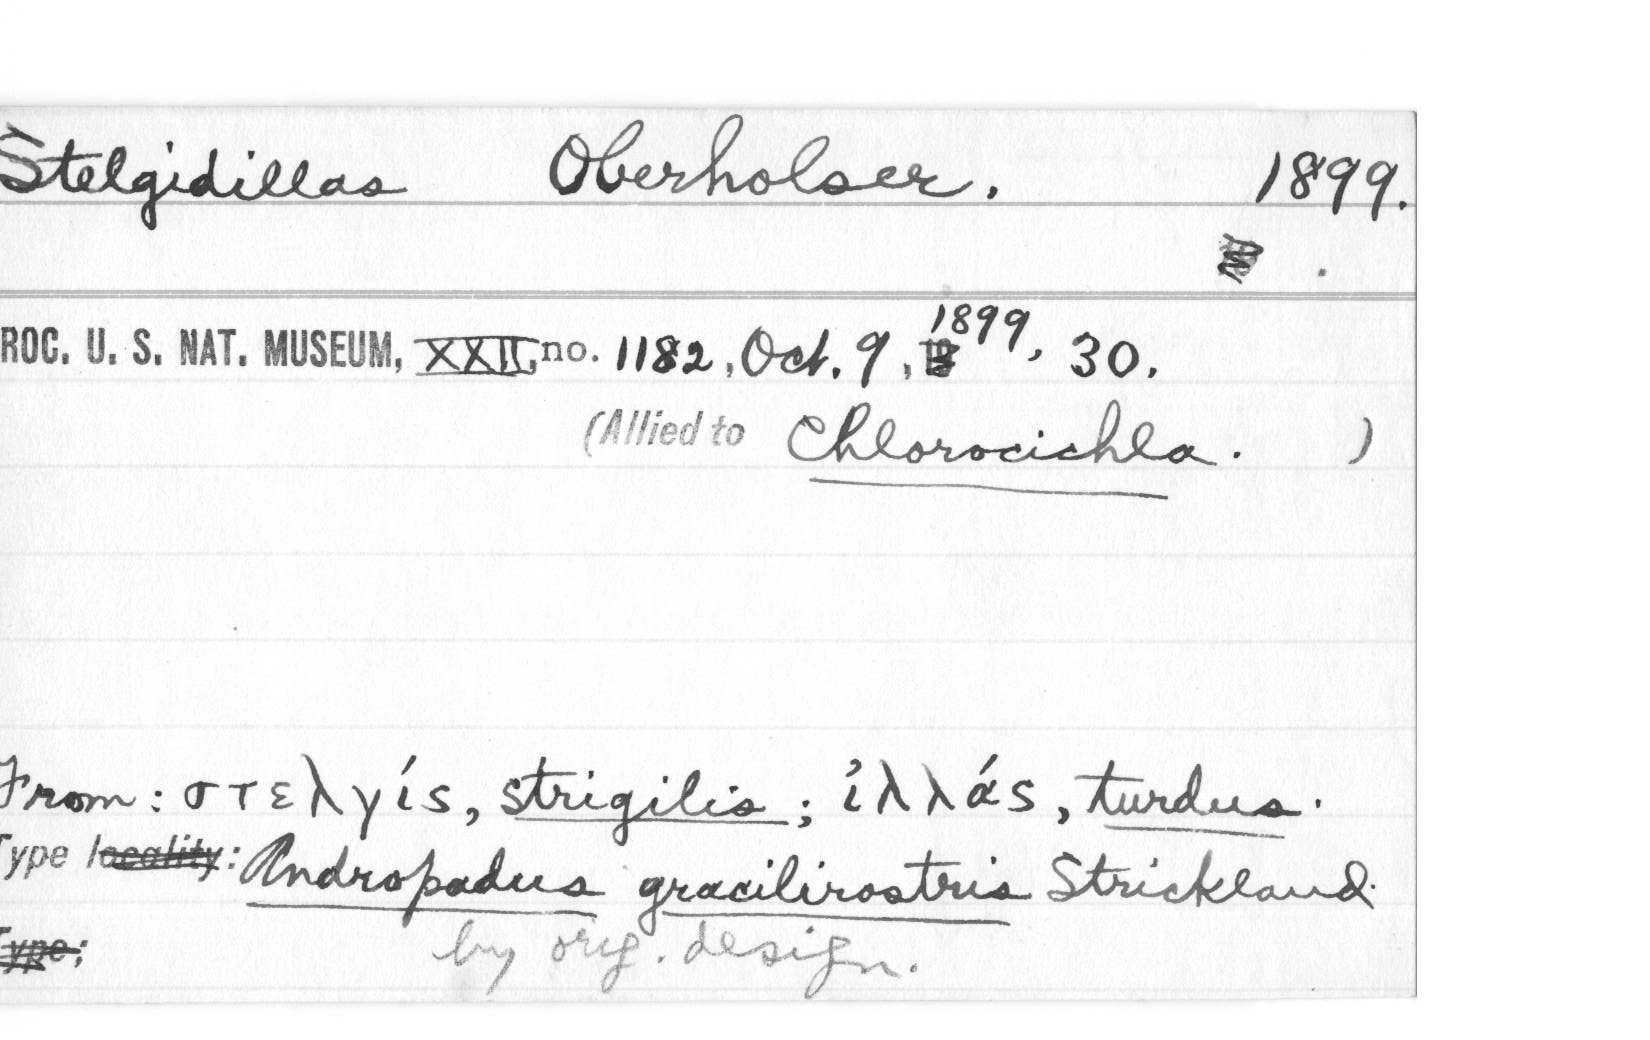 Stelgidillas Oberholser. 1899.
ROC. U. S. NAT. MUSEUM, XXII, no. 1182, Oct. 9, 1899, 30.
(Allied to Chlorocichla. )
From: στελγίς, strigilis; ἰλλάς, turdus.
Type locality: Andropadus gracilirostris Strickland.
Type;
by orig. design.